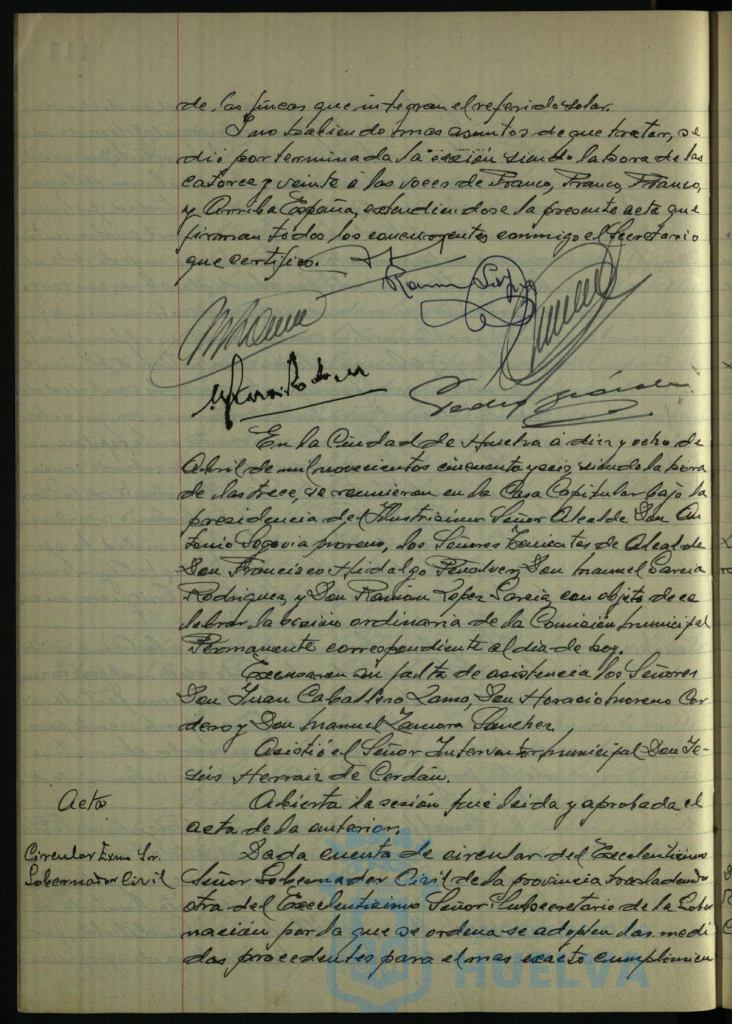 de las fincas que integran el referido solar.
Y no habiendo mas asuntos de que tratar, se
dió por terminada la sesión siendo la hora de las
catorce y veinte á las voces de Franco, Franco, Franco,
y Arriba España, extendiendose la presente acta que
firman todos los concurrentes conmigo el Secretario
que certifico.
En la Ciudad de Huelva á diez y ocho de
Abril de mil novecientos cincuenta y seis, siendo la hora
de las trece, se reunieron en la Casa Capitular bajo la
presidencia del Ilustrisimo Señor Alcalde Don An
tonio Segovia Moreno, los Señores Tenientes de Alcalde
Don Francisco Hidalgo Peñalver, Don Manuel Garcia
Rodriguez y Don Ramón Lopez Garcia, con objeto de ce
lebrar la sesión ordinaria de la Comisión Municipal
Permanente correspondiente al día de hoy.
Excusaron su falta de asistencia los Señores
Don Juan Caballero Ramo, Don Horacio Moreno Cor
dero y Don Manuel Zamora Sanchez.
Asistió el Señor Interventor Municipal Don Je-
sús Herraiz de Cerdán.
Acta
Abierta la sesión fué leida y aprobada el
acta de la anterior.
Circular Exmo Sr.
Gobernador Civil
Dada cuenta de circular del Excelentisimo
Señor Gobernador Civil de la provincia trasladando
otra del Excelentisimo Señor Subsecretario de la Gober
nación por la que se ordena se adopten las medi
das procedentes para el mas exacto cumplimien
HUELVA